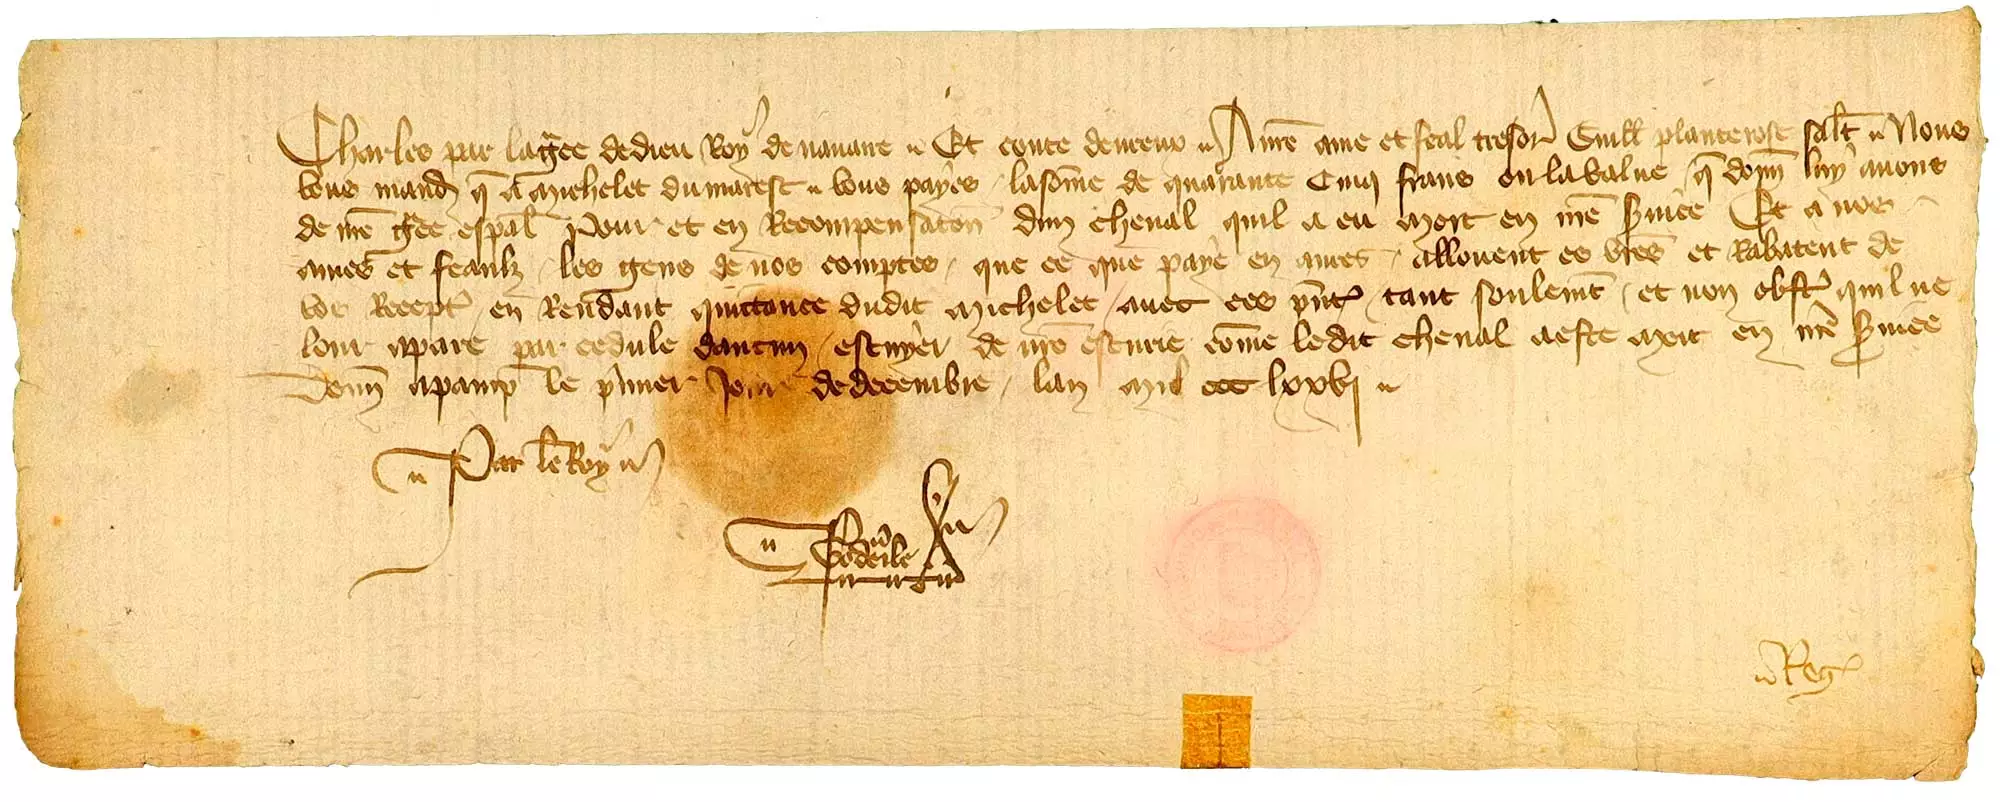 Charles par la gce de dieu Roy de navarre Et conte devreux A nre ame et feal tresor Guill plante rose salt Nous
vous mand q a Michelet du marest vous payes la some de quarante Cinq frans ou la value q donn luy avons
de nre gce espal pour et en Recompensacon dun cheval quil a eu mort en nre svice Et a nos
ames et feaulx les gens de nos comptes que ce que paye en aures allouent es vres et Rabatent de
vos Recept en Rendant quittance dudit Michelet avec ces pntes tant soulemt et non obst quil ne
lour apare par cedule daucun escuyer de nro escurie come le dit cheval a este mort en nre svice
Donn a pamp le pmier Jour de decembre lan mil ccc lxxvj
Par le Roy
Reg